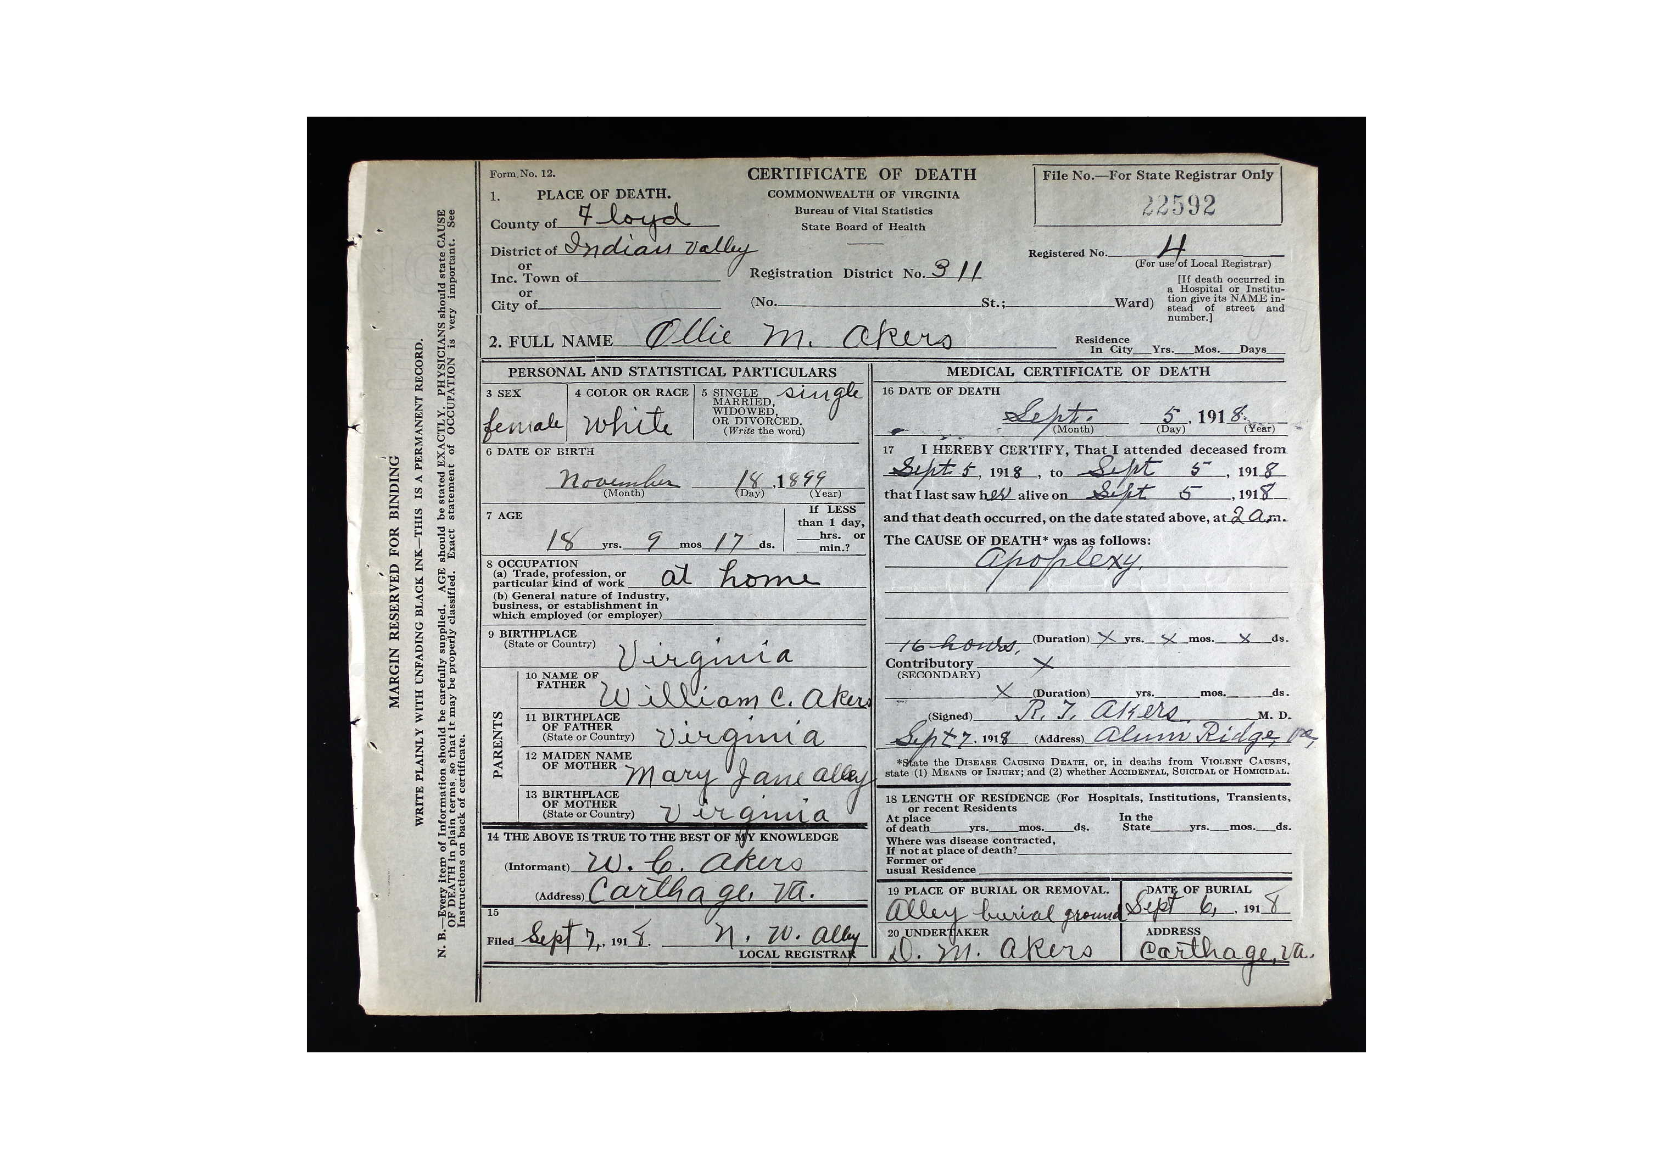 MARGIN RESERVED FOR BINDING
WRITE PLAINLY WITH UNFADING BLACK INK—THIS IS A PERMANENT RECORD.
N. B.—Every item of information should be carefully supplied. AGE should be stated EXACTLY. PHYSICIANS should state CAUSE
OF DEATH in plain terms, so that it may be properly classified. Exact statement of OCCUPATION is very important. See
instructions on back of certificate.
Form No. 12.
CERTIFICATE OF DEATH
COMMONWEALTH OF VIRGINIA
Bureau of Vital Statistics
State Board of Health
File No.—For State Registrar Only
22592
1. PLACE OF DEATH.
County of Floyd
District of Indian Valley
or
Inc. Town of
or
City of
Registration District No. 311
Registered No. 4
(For use of Local Registrar)
(No. St.; Ward)
[If death occurred in
a Hospital or Institu-
tion give its NAME in-
stead of street and
number.]
2. FULL NAME Ollie M. Akers
Residence
In City Yrs. Mos. Days
PERSONAL AND STATISTICAL PARTICULARS
3 SEX
female
4 COLOR OR RACE
white
5 SINGLE
MARRIED,
WIDOWED,
OR DIVORCED.
(Write the word)
single
6 DATE OF BIRTH
November 18, 1899
(Month) (Day) (Year)
7 AGE
18 yrs. 9 mos 17 ds.
If LESS
than 1 day,
hrs. or
min.?
8 OCCUPATION
(a) Trade, profession, or
particular kind of work at home
(b) General nature of Industry,
business, or establishment in
which employed (or employer)
9 BIRTHPLACE
(State or Country) Virginia
PARENTS
10 NAME OF
FATHER William C. Akers
11 BIRTHPLACE
OF FATHER
(State or Country) Virginia
12 MAIDEN NAME
OF MOTHER Mary Jane Alley
13 BIRTHPLACE
OF MOTHER
(State or Country) Virginia
14 THE ABOVE IS TRUE TO THE BEST OF MY KNOWLEDGE
(Informant) W. C. Akers
(Address) Carthage, Va.
15
Filed Sept 7, 1918. N. W. Alley
LOCAL REGISTRAR
MEDICAL CERTIFICATE OF DEATH
16 DATE OF DEATH
Sept. 5, 1918.
(Month) (Day) (Year)
17 I HEREBY CERTIFY, That I attended deceased from
Sept 5, 1918, to Sept 5, 1918
that I last saw her alive on Sept 5, 1918
and that death occurred, on the date stated above, at 2 a.m.
The CAUSE OF DEATH* was as follows:
Apoplexy.
16 hours, (Duration) X yrs. X mos. X ds.
Contributory X
(SECONDARY)
X (Duration) yrs. mos. ds.
(Signed) R. T. Akers M. D.
Sept 7, 1918 (Address) Alum Ridge, Va,
*State the DISEASE CAUSING DEATH, or, in deaths from VIOLENT CAUSES,
state (1) MEANS OF INJURY; and (2) whether ACCIDENTAL, SUICIDAL OR HOMICIDAL.
18 LENGTH OF RESIDENCE (For Hospitals, Institutions, Transients,
or recent Residents
At place
of death yrs. mos. ds.
In the
State yrs. mos. ds.
Where was disease contracted,
If not at place of death?
Former or
usual Residence
19 PLACE OF BURIAL OR REMOVAL.
Alley burial ground
DATE OF BURIAL
Sept 6, 1918
20 UNDERTAKER
D. M. Akers
ADDRESS
Carthage, Va.